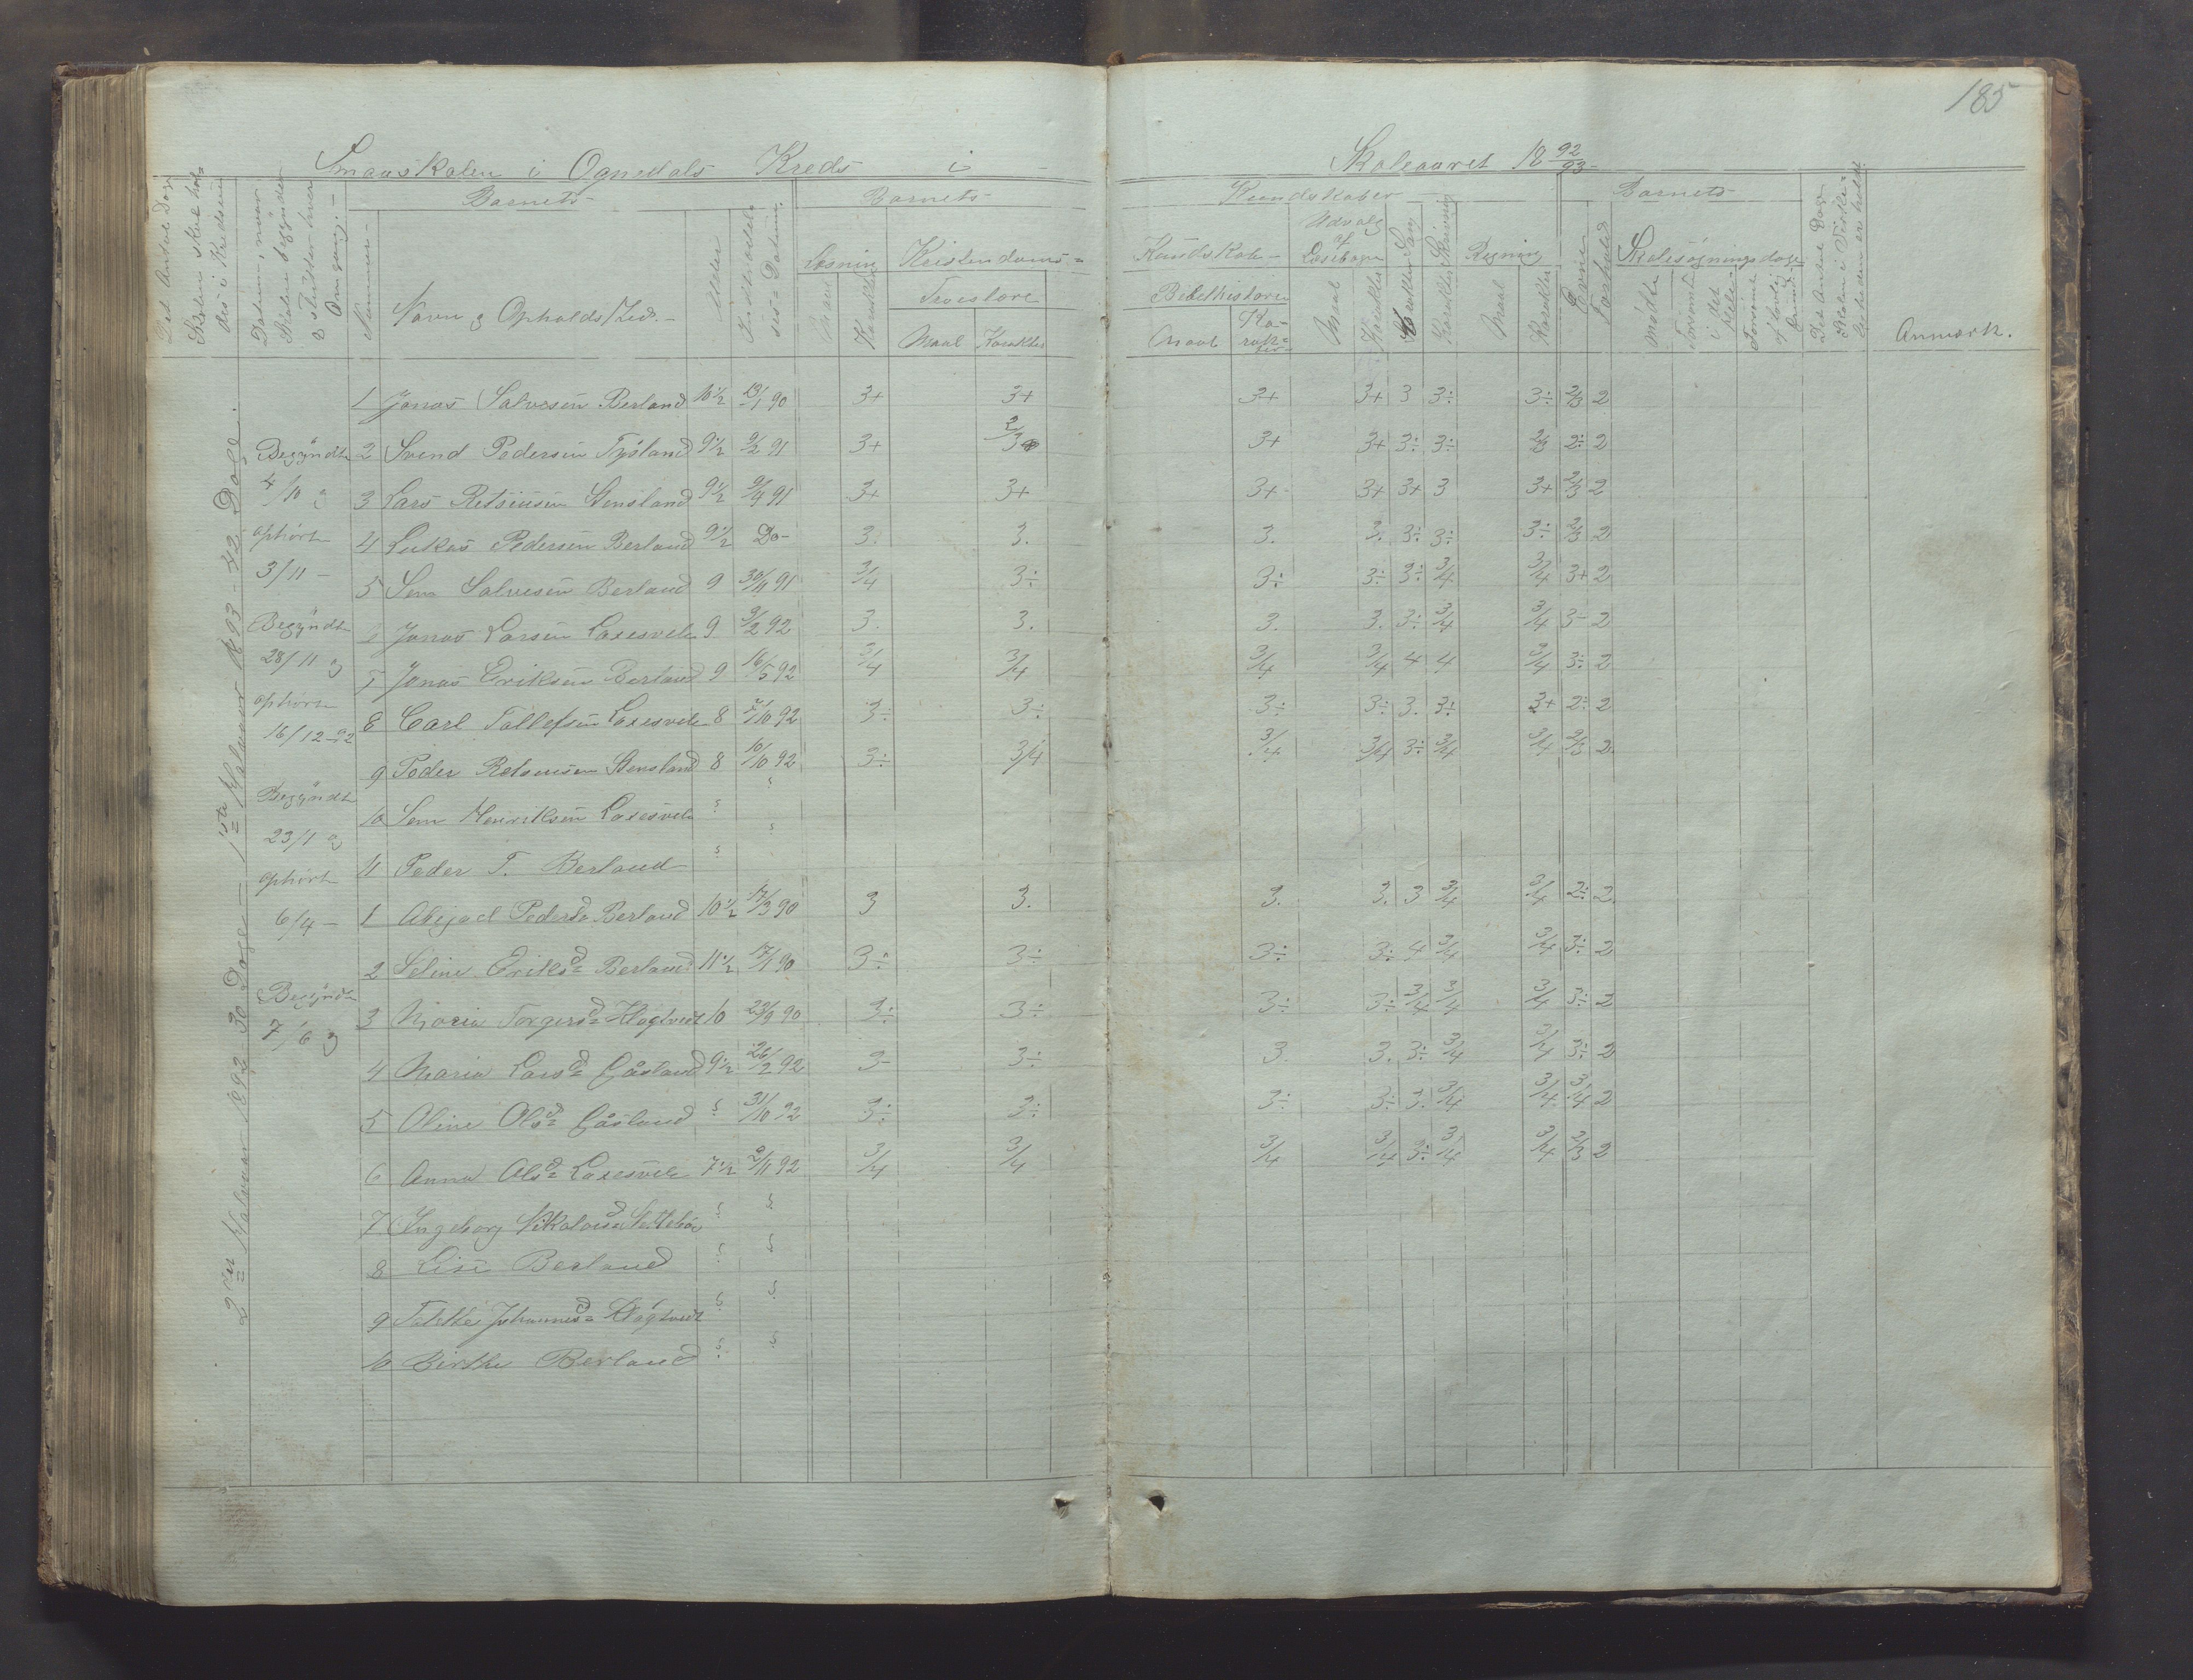 185
Smaaskolen i Ognedals Kreds i
Skoleaaret 1892/93
Det Antal Dage Skolen skal holdes i Kredsen
Datum, naar Skolen begynder & slutter hver Omgang.
Barnets
Nummer
Navn & Opholdssted.
Alder
Indtrædelses= Datum.
Barnets
Læsning
Maal
Karakter
Kristendoms=
Troeslære
Maal
Karakter
Kundskaber
Kundskab
Bibelhistorie
Maal
Karakter
Udvalg af Læsebogen
Maal
Karakter
Sang
Karakter
Skrivning
Karakter
Regning
Maal
Karakter
Barnets
Evner
Forhold
Skolesøgningsdage
Mødte
Forsømte i det Hele
Forsømt af lovlig Grund
Det Antal Dage Skolen i Virkeligheden er holdt
Anmærk.
2den Halvaar 1892 30 Dage – 1ste Halvaar 1893 – 42 Dage.
Begyndt
4/10 &
ophørt
3/11 –
Begyndt
28/11 &
ophørt
16/12–92
Begyndt
23/1 &
ophørt
6/4 –
Begyndt
7/6 &
1 Jonas Salvesen Berland 10 1/2 13/1 90 3+ 3+ 3+ 3+ 3 3÷ 3÷ 2/3 2
2 Svend Pedersen Tysland 9 1/2 9/2 91 3+ 2/3 3+ 3+ 3÷ 3÷ 2/3 2÷ 2
3 Lars Retsiusen Stensland 9 1/2 9/4 91 3+ 3+ 3+ 3+ 3+ 3 3+ 2/3 2
4 Lukas Pedersen Berland 9 1/2 Do– 3. 3. 3. 3. 3÷ 3÷ 3÷ 2/3 2
5 Sem Salvesen Berland 9 30/11 91 3/4 3÷ 3÷ 3÷ 3÷ 3/4 3/4 3+ 2
6 Jonas Larsen Laxesvele 9 9/2 92 3. 3. 3. 3. 3÷ 3/4 3/4 3– 2
7 Jonas Eriksen Berland 9 16/5 92 3/4 3/4 3/4 3/4 4 4 3/4 3÷ 2
8 Carl Tallefsen Laxesvele 8 5/10 92 3÷ 3÷ 3÷ 3÷ 3. 3÷ 3+ 2÷ 2
9 Peder Retsiusen Stensland 8 10/10 92 3÷ 3/4 3/4 3/4 3÷ 3/4 3/4 2/3 2.
10 Sem Henriksen Laxesvele
11 Peder T. Berland
1 Abigael Pedersd. Berland 10 1/2 17/3 90 3 3. 3. 3. 3 3/4 3/4 2÷ 2.
2 Seline Eriksd= Berland 11 1/2 17/1 90 3÷ 3÷ 3÷ 3÷ 4 3/4 3/4 3÷ 2
3 Maria Torgersd= Kløgtvedt 10 29/9 90 3÷ 3÷ 3÷ 3÷ 3/4 3/4 3/4 3÷ 2
4 Maria Larsd= Gåsland 9 1/2 26/2 92 3– 3÷ 3. 3. 3÷ 3/4 3/4 3÷ 2
5 Oline Olsd= Gåsland 31/10 92 3÷ 3÷ 3÷ 3÷ 3. 3/4 3/4 3/4 2
6 Anna Olsd= Laxesvele 7 1/2 9/11 92 3/4 3/4 3/4 3/4 3÷ 3/4 3/4 2/3 2
7 Ingeborg
8 Lise Berland
9 Johannesd= Kløgtvedt
10 Birthe Berland